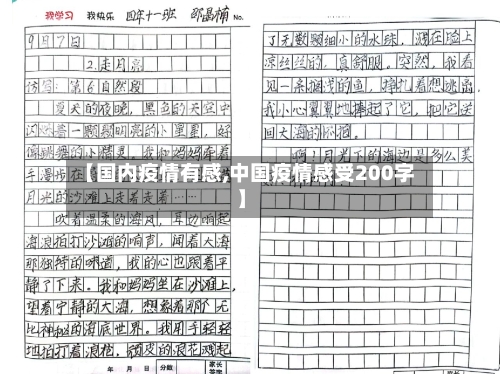 我学习 我快乐 四年十一班 邵晶楠 No.
9月7日
2.走月亮
仿写:第6自然段
夏天的夜晚,黑色的天空中
闪烁着一颗颗明亮的小星星,好
像跳舞的小精灵。我和妈妈牵着
手漫步在
月光的沙滩上走着走着……
吹着温柔的海风,耳边响起
海浪拍打沙滩的响声,闻着大海
那独特的味道,我的心也跟着平
静了下来。我和妈妈坐在沙滩上,
望着宁静的大海,想象着那个无
比神秘的海底世界。我用手轻轻
地拍打着浪花,顽皮的浪花溅起
年 月 日 分数 家长签字
了无数颗细小的水珠,洒在脸上
凉丝丝的,真舒服。突然,我看
见一条搁浅的鱼,挣扎着想逃离,
我小心翼翼地捧起了它,把它送
回大海的怀抱。
啊!月光下的海边是多么美
【国内疫情有感,中国疫情感受200字
】
年 月 日 分数 家长签字